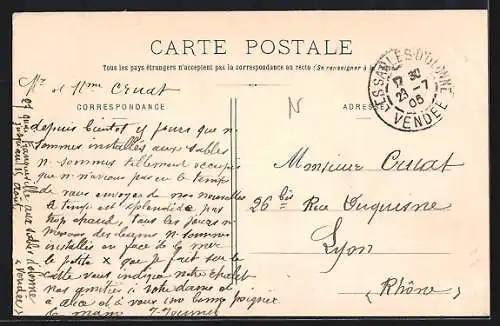 CARTE POSTALE
Tous les pays étrangers n'acceptent pas la correspondance au recto (Se renseigner à la
CORRESPONDANCE
ADRESSE
LES SABLES-D'OLONNE
17 30
29 -7
06
VENDÉE
N
Mr et Mme Cruat
depuis bientot 4 jours que n.
sommes installés aux sables
n. sommes tellement occupés
que n. n'avons pas eu le temps
de vous envoyer de nos nouvelles
le temps est splendide pas
trop chaud, tous les jours n.
prenons des bains n. sommes
installés en face de la mer
la petite x que je fait sur la
carte vous indique notre chalet
nos amitiés à votre dame et
à vous une bonne poignée
de main J. Fournel
27 quai Franqueville aux sables d'olonne
jusqu'au 15 août
(Vendée)
Monsieur Cruat
26 bis Rue Duquesne
Lyon
(Rhône)